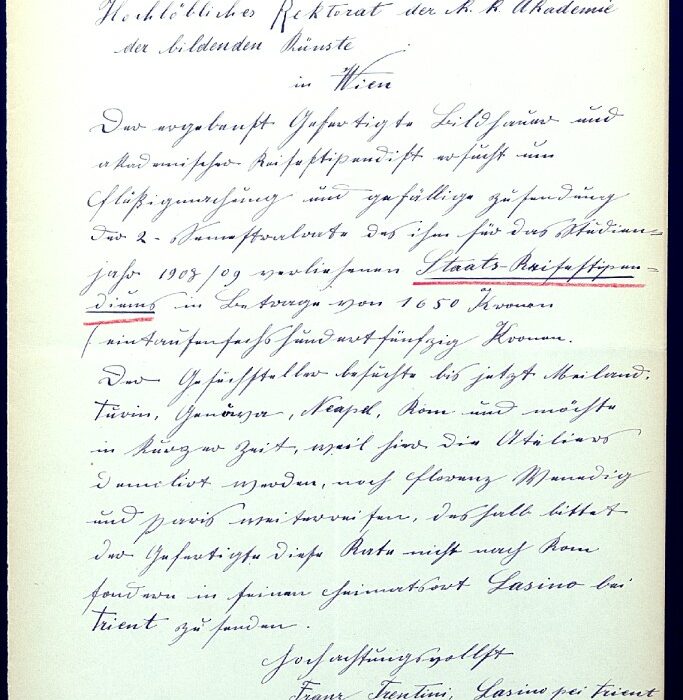 Hochlöbliches Rektorat der k. k. Akademie
der bildenden Künste
in Wien
Der ergebenst Gefertigte Bildhauer und
akademischer Reisestipendist ersucht um
Flüßigmachung und gefällige zusendung
der 2-Semestralrate des ihm für das Studien=
jahr 1908/09 verliehenen Staats-Reisestipen=
diums in Betrage von 1650 Kronen
(eintausensechshundertfünfzig Kronen.
Der Gesuchsteller besuchte bis jetzt Meiland,
Turin, Genova, Neapel, Rom und möchte
in kurzer Zeit, weil hier die Ateliers
demolirt werden, noch Florenz Wenedig
und Paris weiterreisen, deshalb bittet
der Gefertigte diese Rate nicht nach Rom
sondern in seinen Heimatsort Lasino bei
Trient zu senden.
Hochachtungsvollst
Franz Trentini, Lasino pei Trient